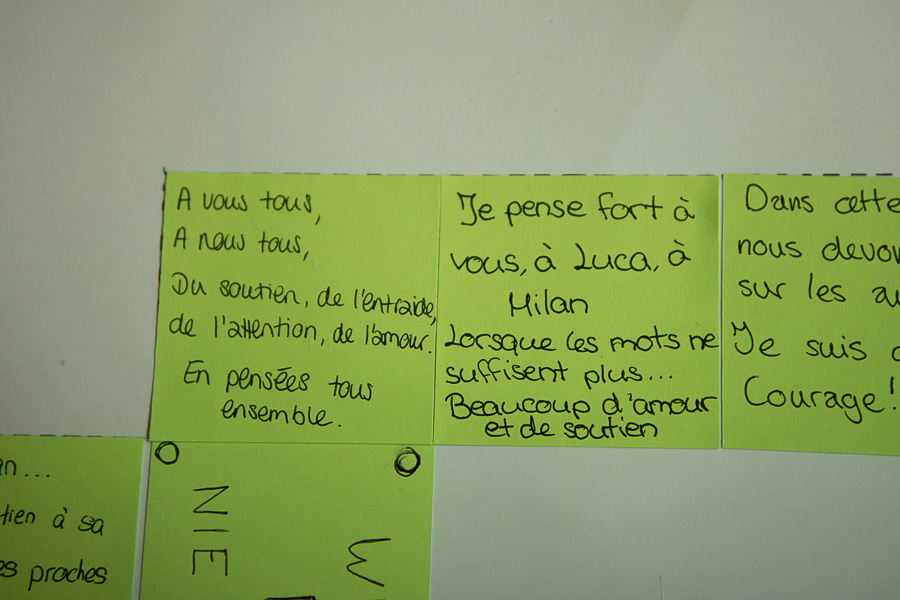 A vous tous,
A nous tous,
Du soutien, de l'entraide,
de l'attention, de l'amour.
En pensées tous
ensemble.
Je pense fort à
vous, à Luca, à
Milan
Lorsque les mots ne
suffisent plus...
Beaucoup d'amour
et de soutien
Dans cette
nous
sur les
Je suis
Courage!
à sa
proches
NIE